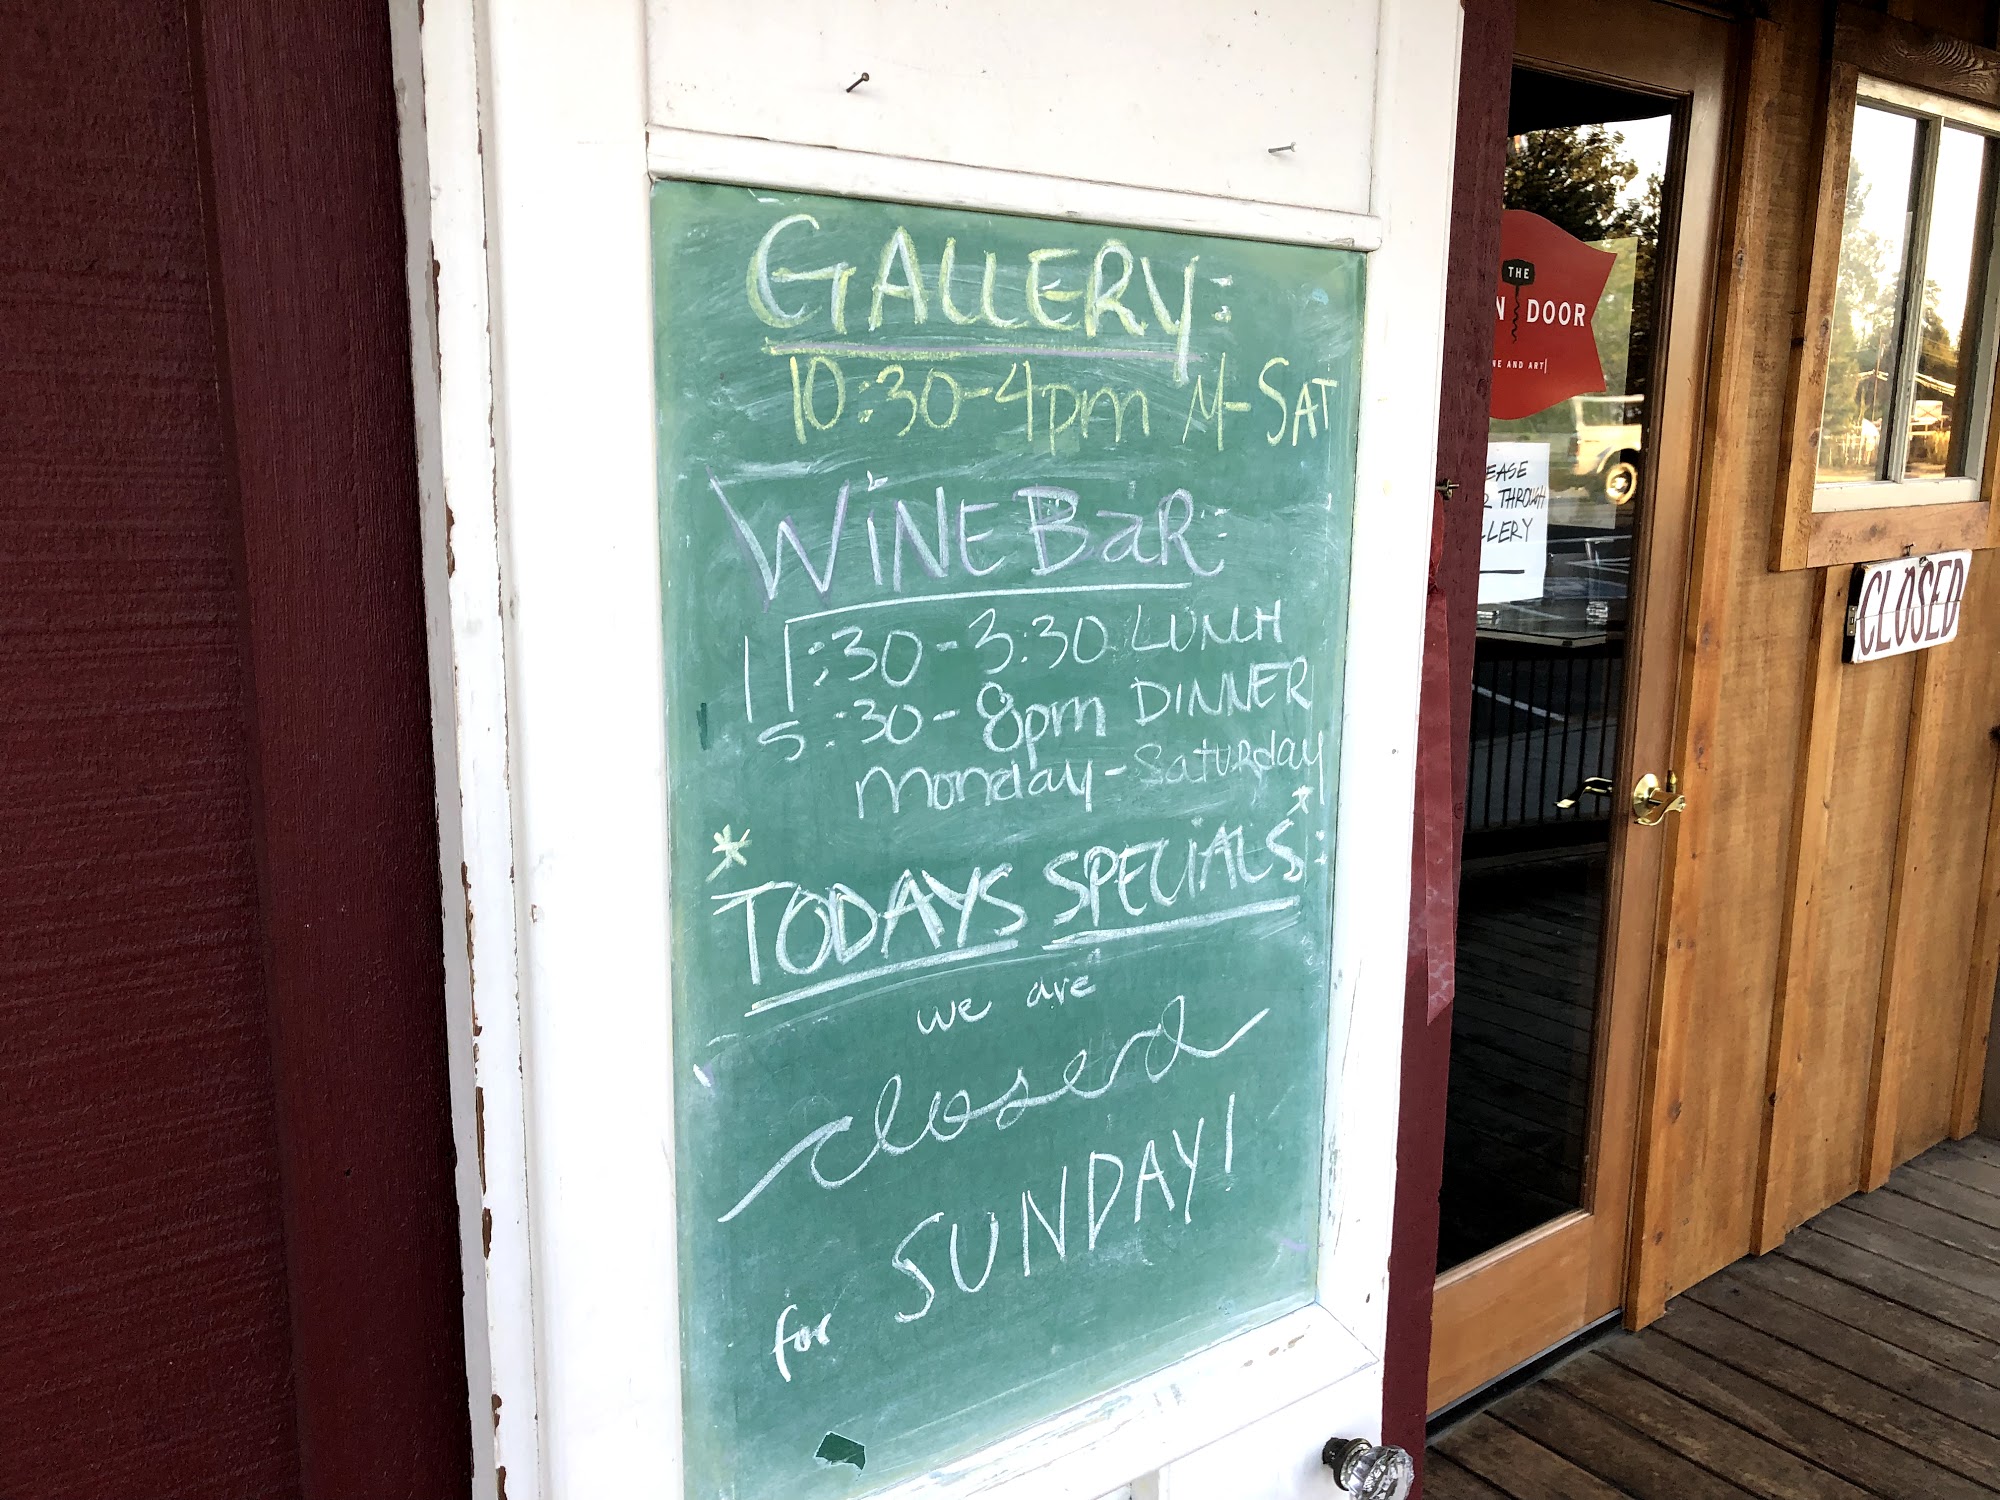 GALLERY:
10:30-4pm M-SAT
WiNE BaR:
11:30-3:30 LUNCH
5:30-8pm DINNER
Monday-Saturday
*TODAYS SPECIALS*:
we are
closed
for SUNDAY!
THE
DOOR
AND ART
THROUGH
CLOSED